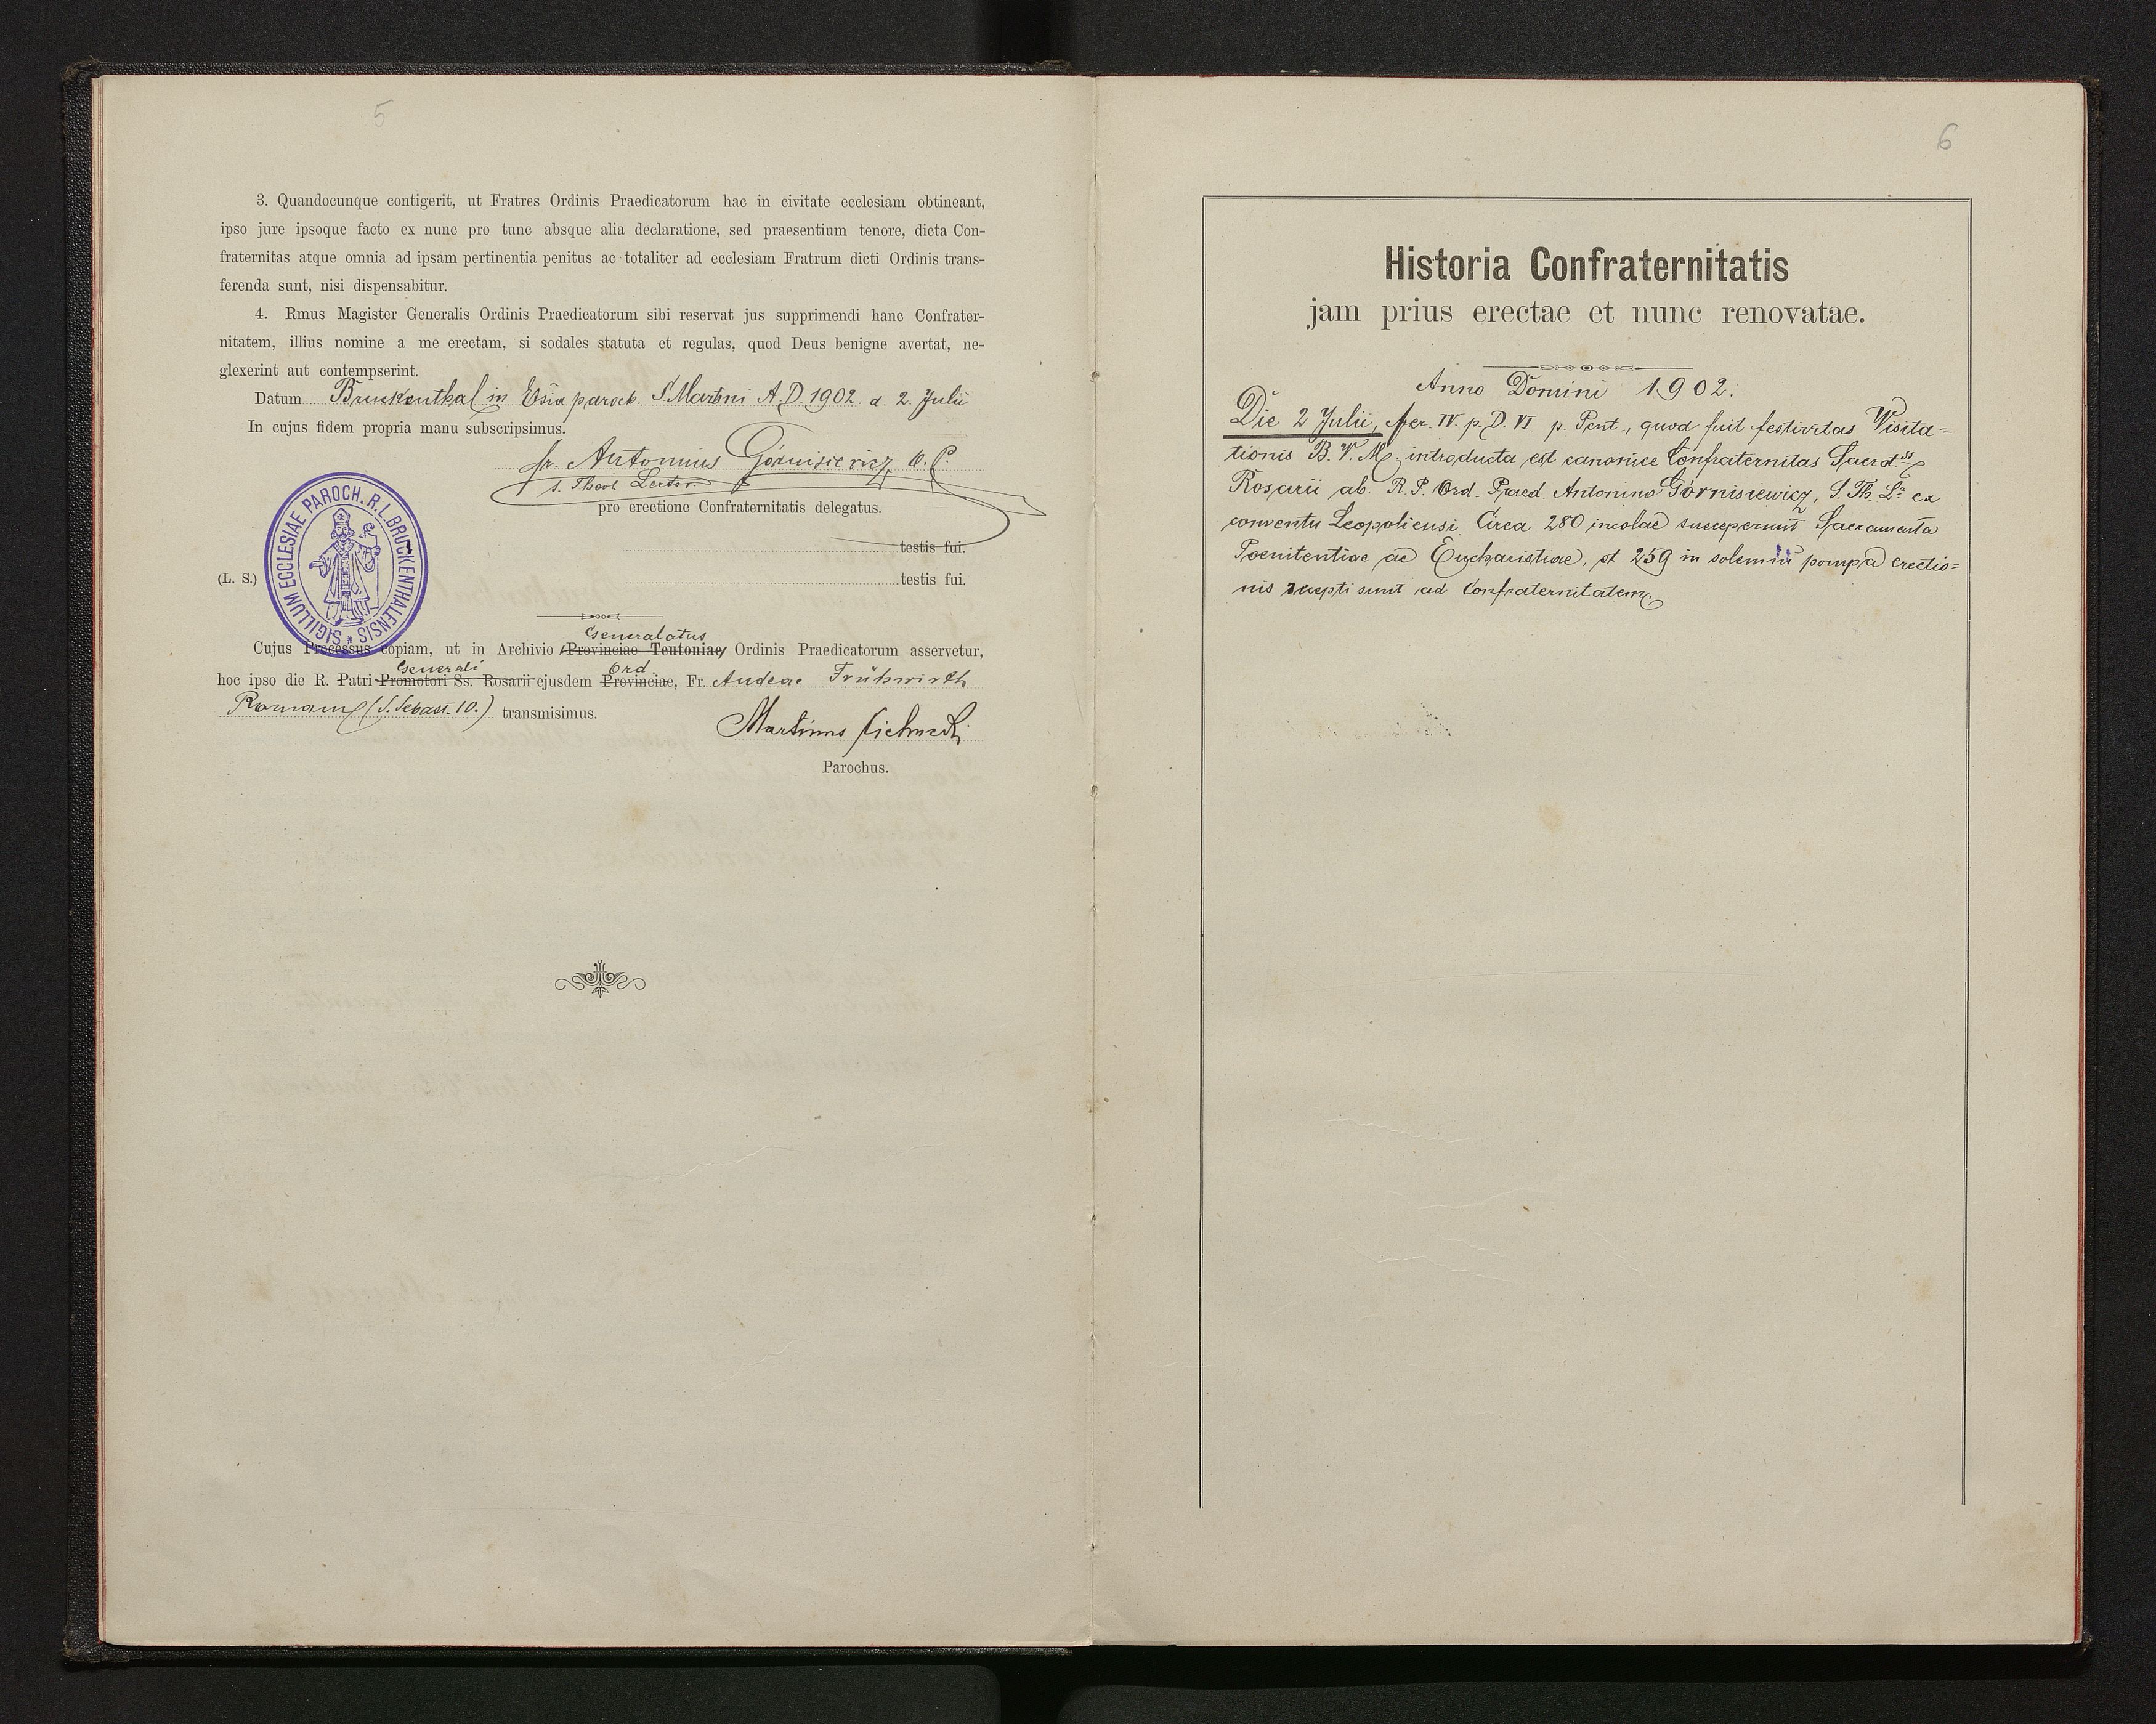 5
3. Quandocunque contigerit, ut Fratres Ordinis Praedicatorum hac in civitate ecclesiam obtineant,
ipso jure ipsoque facto ex nunc pro tunc absque alia declaratione, sed praesentium tenore, dicta Con-
fraternitas atque omnia ad ipsam pertinentia penitus ac totaliter ad ecclesiam Fratrum dicti Ordinis trans-
ferenda sunt, nisi dispensabitur.
4. Rmus Magister Generalis Ordinis Praedicatorum sibi reservat jus supprimendi hanc Confrater-
nitatem, illius nomine a me erectam, si sodales statuta et regulas, quod Deus benigne avertat, ne-
glexerint aut contempserint.
Datum Bruckenthal in Esia paroch. S Martini A. D. 1902. d. 2. Julii
In cujus fidem propria manu subscripsimus.
fr. Antoninus Górnisiewicz O. P.
S. Theol Lector
pro erectione Confraternitatis delegatus.
testis fui.
(L. S.) testis fui.
SIGILLUM ECCLESIAE PAROCH. R. L. BRUCKENTHALENSIS *
Generalatus
Cujus Processus copiam, ut in Archivio Provinciae Teutoniae Ordinis Praedicatorum asservetur,
Generali Ord
hoc ipso die R. Patri Promotori Ss. Rosarii ejusdem Provinciae, Fr. Andeae Frühwirth
Romam (S. Sebast. 10.) transmisimus.
Martinus
Parochus.
6
Historia Confraternitatis
jam prius erectae et nunc renovatae.
Anno Domini 1902.
Die 2 Julii, fer. IV. p. D. VI p. Pent., quod fuit festivitas Visita=
tionis B. V. M, introducta est canonice Confraternitas Sacrat.ss
Rosarii ab R. P. Ord. Praed. Antonino Górnisiewicz, S. Th. Lr ex
conventu Leopoliensi. Circa 280 incolae susceperunt Sacramenta
Poenitentiae ac Eucharistiae, et 259 in solemni pompa erectio=
nis suscepti sunt ad Confraternitatem.